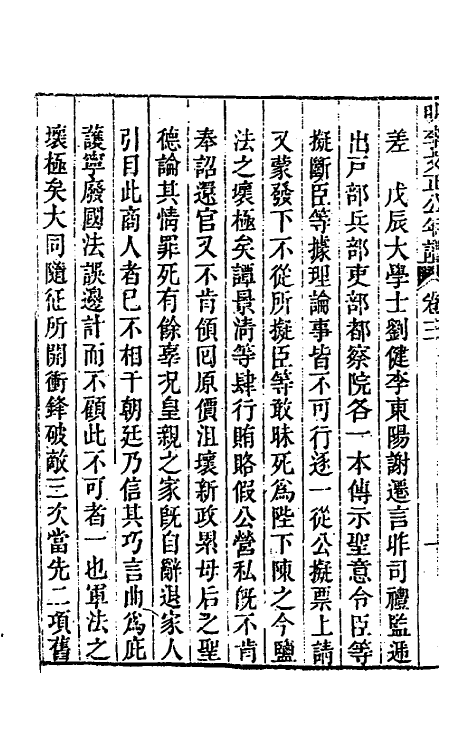 明李文正公年譜 卷三
差　戊辰大學士劉健李東陽謝遷言昨司禮監遞
出戸部兵部吏部都察院各一本傳示聖意令臣等
擬斷臣等據理論事皆不可行逐一從公擬票上請
又蒙發下不從所擬臣等敢昧死爲陛下陳之今鹽
法之壞極矣譚景淸等肆行賄賂假公營私旣不肯
奉詔還官又不肯領囘原價沮壞新政累母后之聖
德論其情罪死有餘辜况皇親之家旣自辭退家人
引目此商人者已不相干朝廷乃信其巧言曲爲庇
護寧廢國法誤邊計而不顧此不可者一也軍法之
壞極矣大同隨征所開衝鋒破敵三次當先二項舊